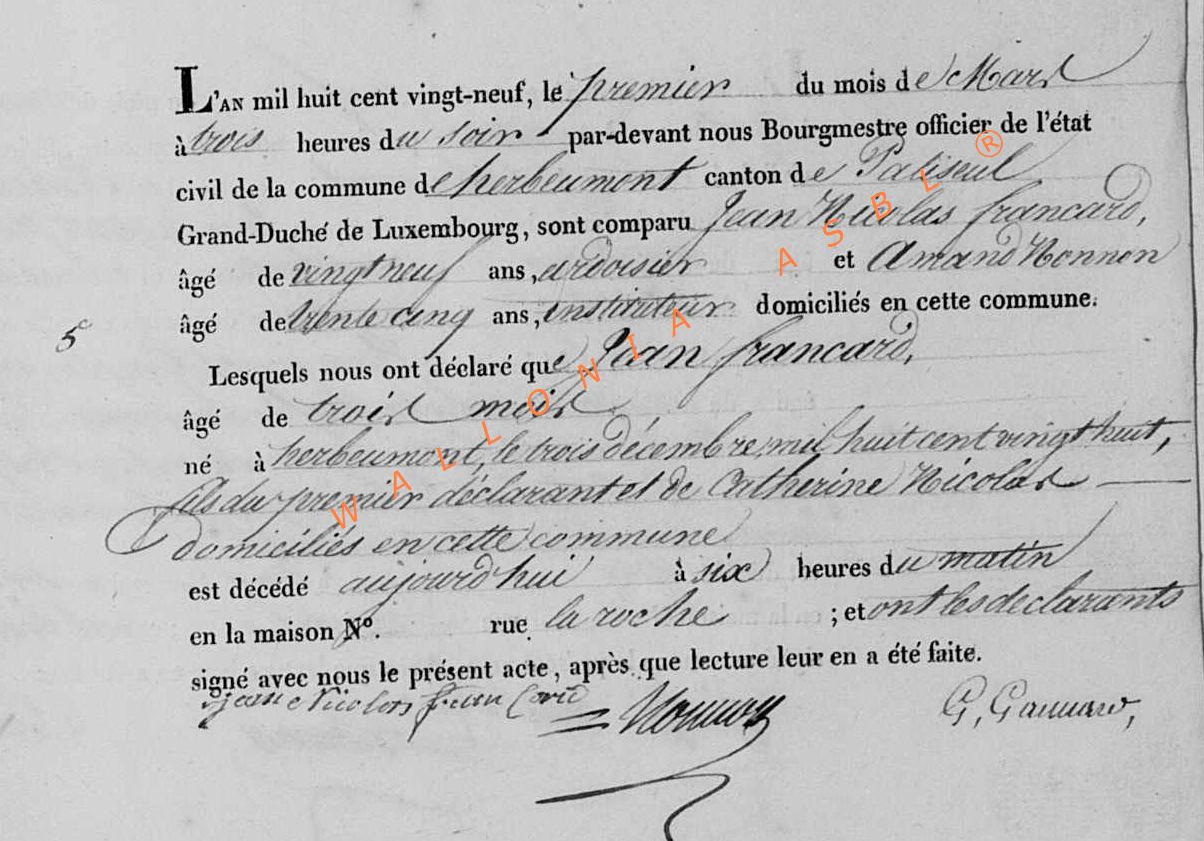 L'AN mil huit cent vingt-neuf, le premier du mois de Mars
à trois heures du soir par-devant nous Bourgmestre officier de l'état
civil de la commune de herbeumont canton de Paliseul
Grand-Duché de Luxembourg, sont comparu Jean Nicolas francard,
âgé de vingt neuf ans, ardoisier et Amand Nonnon
âgé de trente cinq ans, instituteur domiciliés en cette commune.
5e
Lesquels nous ont déclaré que Jean francard,
âgé de trois mois
né à herbeumont, le trois décembre mil huit cent vingt huit,
fils du premier déclarant et de Catherine Nicolas
domiciliés en cette commune
est décédé aujourd'hui à six heures du matin
en la maison N°. rue la roche ; et ont les declarants
signé avec nous le présent acte, après que lecture leur en a été faite.
jean Nicolas francard Nonnon G,
WALLONIA ASBL ®